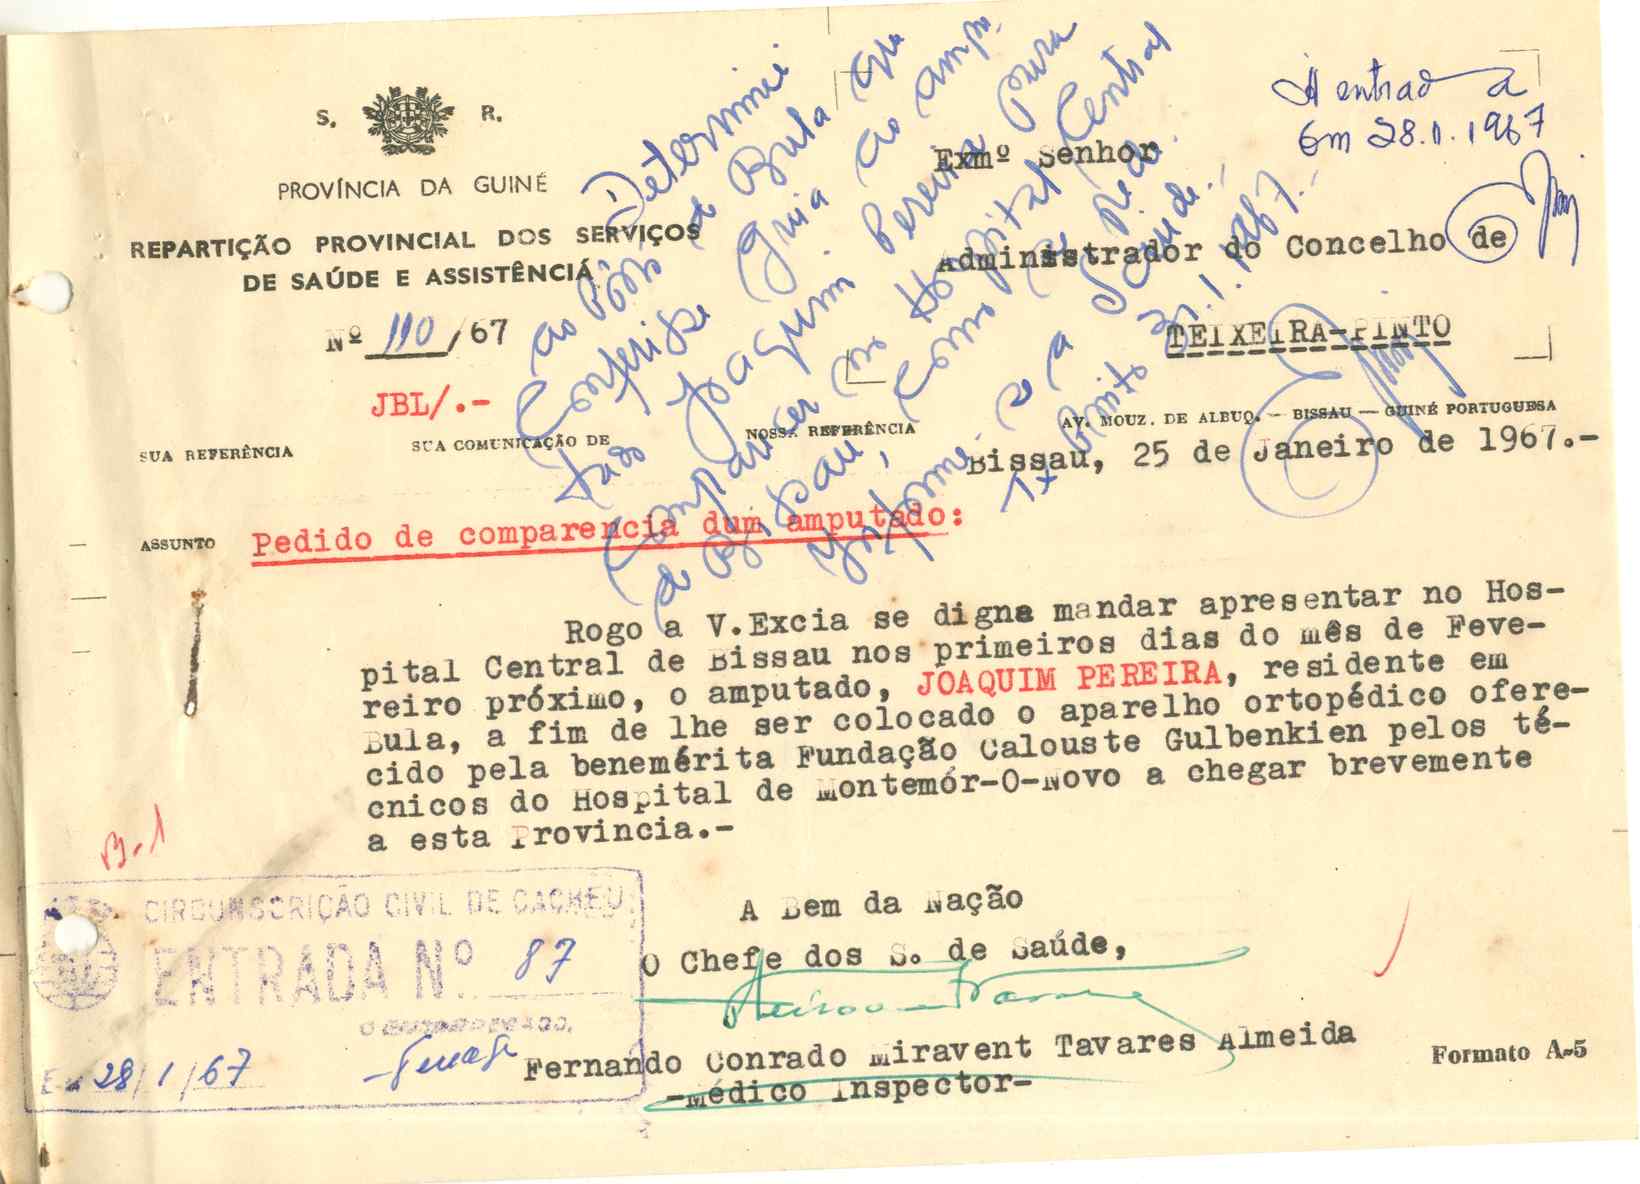 S. R.
PROVÍNCIA DA GUINÉ
REPARTIÇÃO PROVINCIAL DOS SERVIÇOS
DE SAÚDE E ASSISTÊNCIA
Nº 110/67
JBL/.-
À entrada
Em 28.1.1967
Exmº Senhor
Administrador do Concelho de
TEIXEIRA-PINTO
AV. MOUZ. DE ALBUQ. — BISSAU — GUINÉ PORTUGUESA
SUA REFERÊNCIA SUA COMUNICAÇÃO DE NOSSA REFERÊNCIA
Bissau, 25 de Janeiro de 1967.-
Determinei
ao Posto de Bula que
Conferisse Guia ao ampu-
tado Joaquim Pereira para
Comparecer no Hospital Central
de Bissau, Como pedido.
Informe-se a Saúde.
Tx Pinto 31.1.1967.
ASSUNTO Pedido de comparencia dum amputado:
Rogo a V.Excia se digne mandar apresentar no Hos-
pital Central de Bissau nos primeiros dias do mês de Feve-
reiro próximo, o amputado, JOAQUIM PEREIRA, residente em
Bula, a fim de lhe ser colocado o aparelho ortopédico ofere-
cido pela benemérita Fundação Calouste Gulbenkien pelos té-
cnicos do Hospital de Montemór-O-Novo a chegar brevemente
a esta Provincia.-
B-1
CIRCUNSCRIÇÃO CIVIL DE CACHEU
ENTRADA Nº 87
O ENCARREGADO,
Em 28/1/67
A Bem da Nação
O Chefe dos S. de Saúde,
Fernando Conrado Miravent Tavares Almeida
-Médico Inspector-
Formato A-5